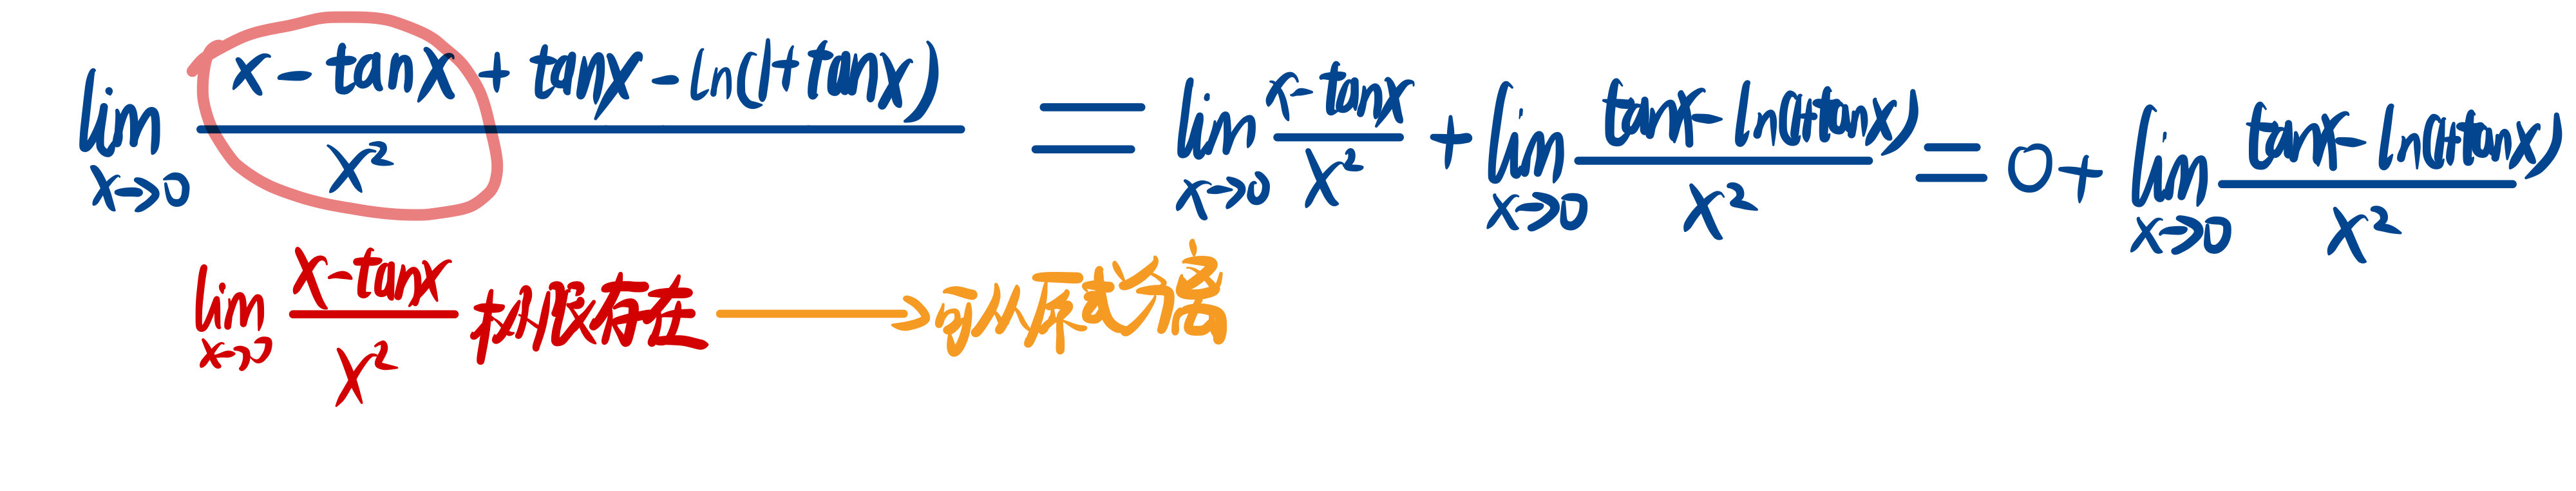 lim x→0 (x - tanx + tanx - ln(1+tanx)) / x² = lim x→0 (x-tanx) / x² + lim x→0 (tanx - ln(1+tanx)) / x² = 0 + lim x→0 (tanx - ln(1+tanx)) / x²
lim x→0 (x-tanx) / x² 极限存在 → 可从原式分离